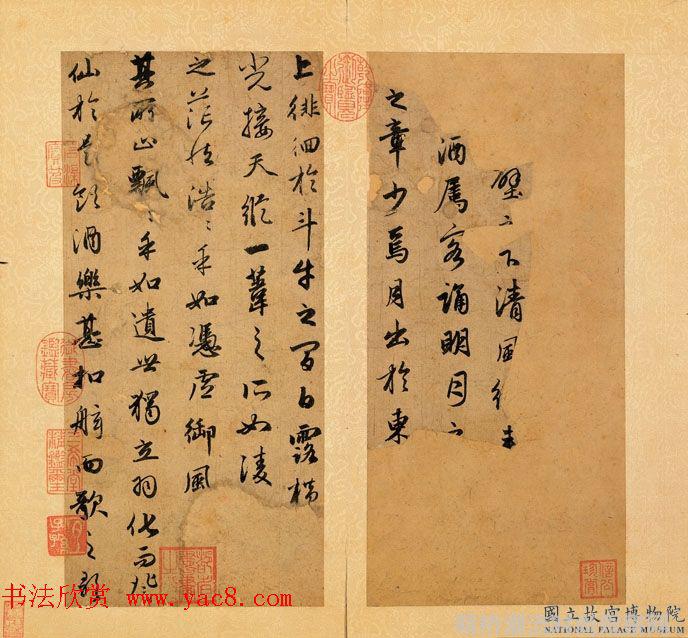 壁之下清風徐来
酒属客誦明月之
之章少焉月出於東
上徘徊於斗牛之間白露横
光接天縱一葦之所如陵
之茫然浩〻乎如憑虚御風
其所止飄〻乎如遺世獨立羽化而登
仙於是飲酒樂甚扣舷而歌之歌
书法欣赏 www.yac8.com
國立故宮博物院
NATIONAL PALACE MUSEUM